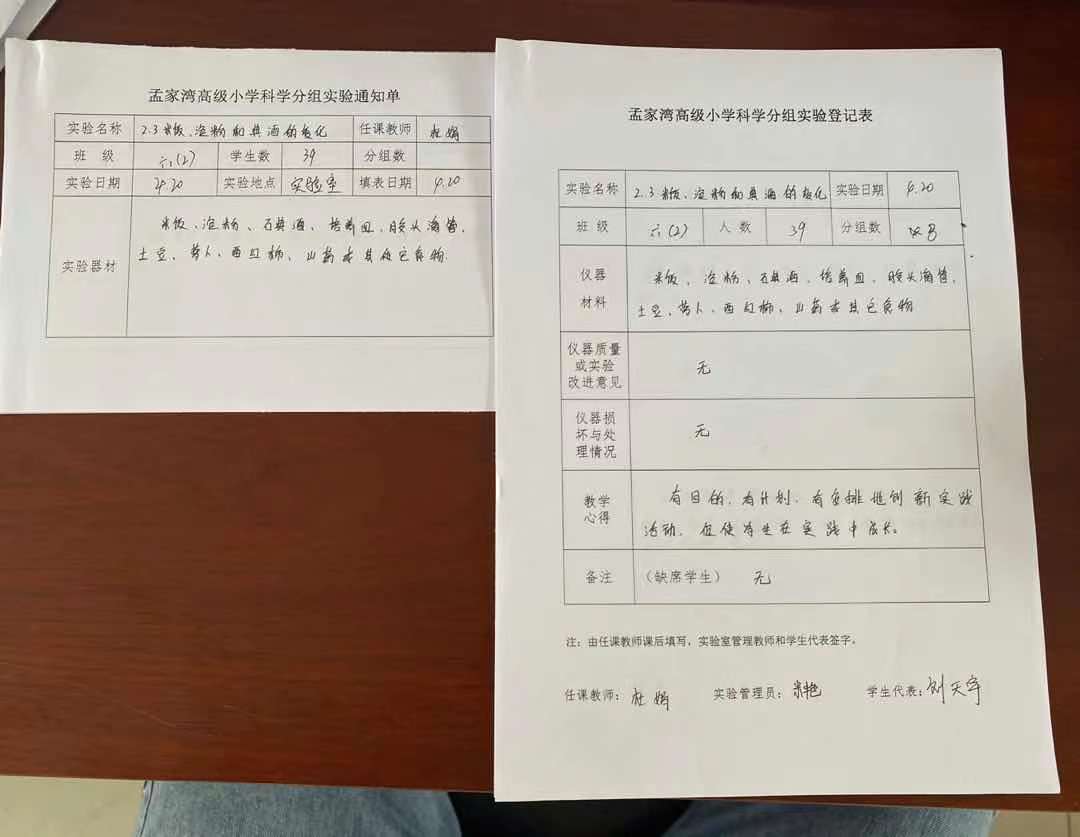 孟家湾高级小学科学分组实验通知单
实验名称 2.3米饭、淀粉和碘酒的变化 任课教师 杜娟
班 级 六(2) 学生数 39 分组数
实验日期 4.20 实验地点 实验室 填表日期 4.20
实验器材
米饭、淀粉、石碘酒、培养皿、胶头滴管、
土豆、萝卜、西红柿、山药等其他它食物.
孟家湾高级小学科学分组实验登记表
实验名称 2.3米饭、淀粉和碘酒的变化 实验日期 4.20
班 级 六(2) 人 数 39 分组数 8
仪器
材料
米饭、淀粉、石碘酒、培养皿、胶头滴管、
土豆、萝卜、西红柿、山药等其它食物
仪器质量
或实验
改进意见
无
仪器损
坏与处
理情况
无
教学
心得
有目的、有计划、有安排地创新实践
活动、促使学生在实践中成长。
备注 (缺席学生) 无
注: 由任课教师课后填写, 实验室管理教师和学生代表签字。
任课教师: 杜娟 实验管理员: 学生代表: 刘天宇